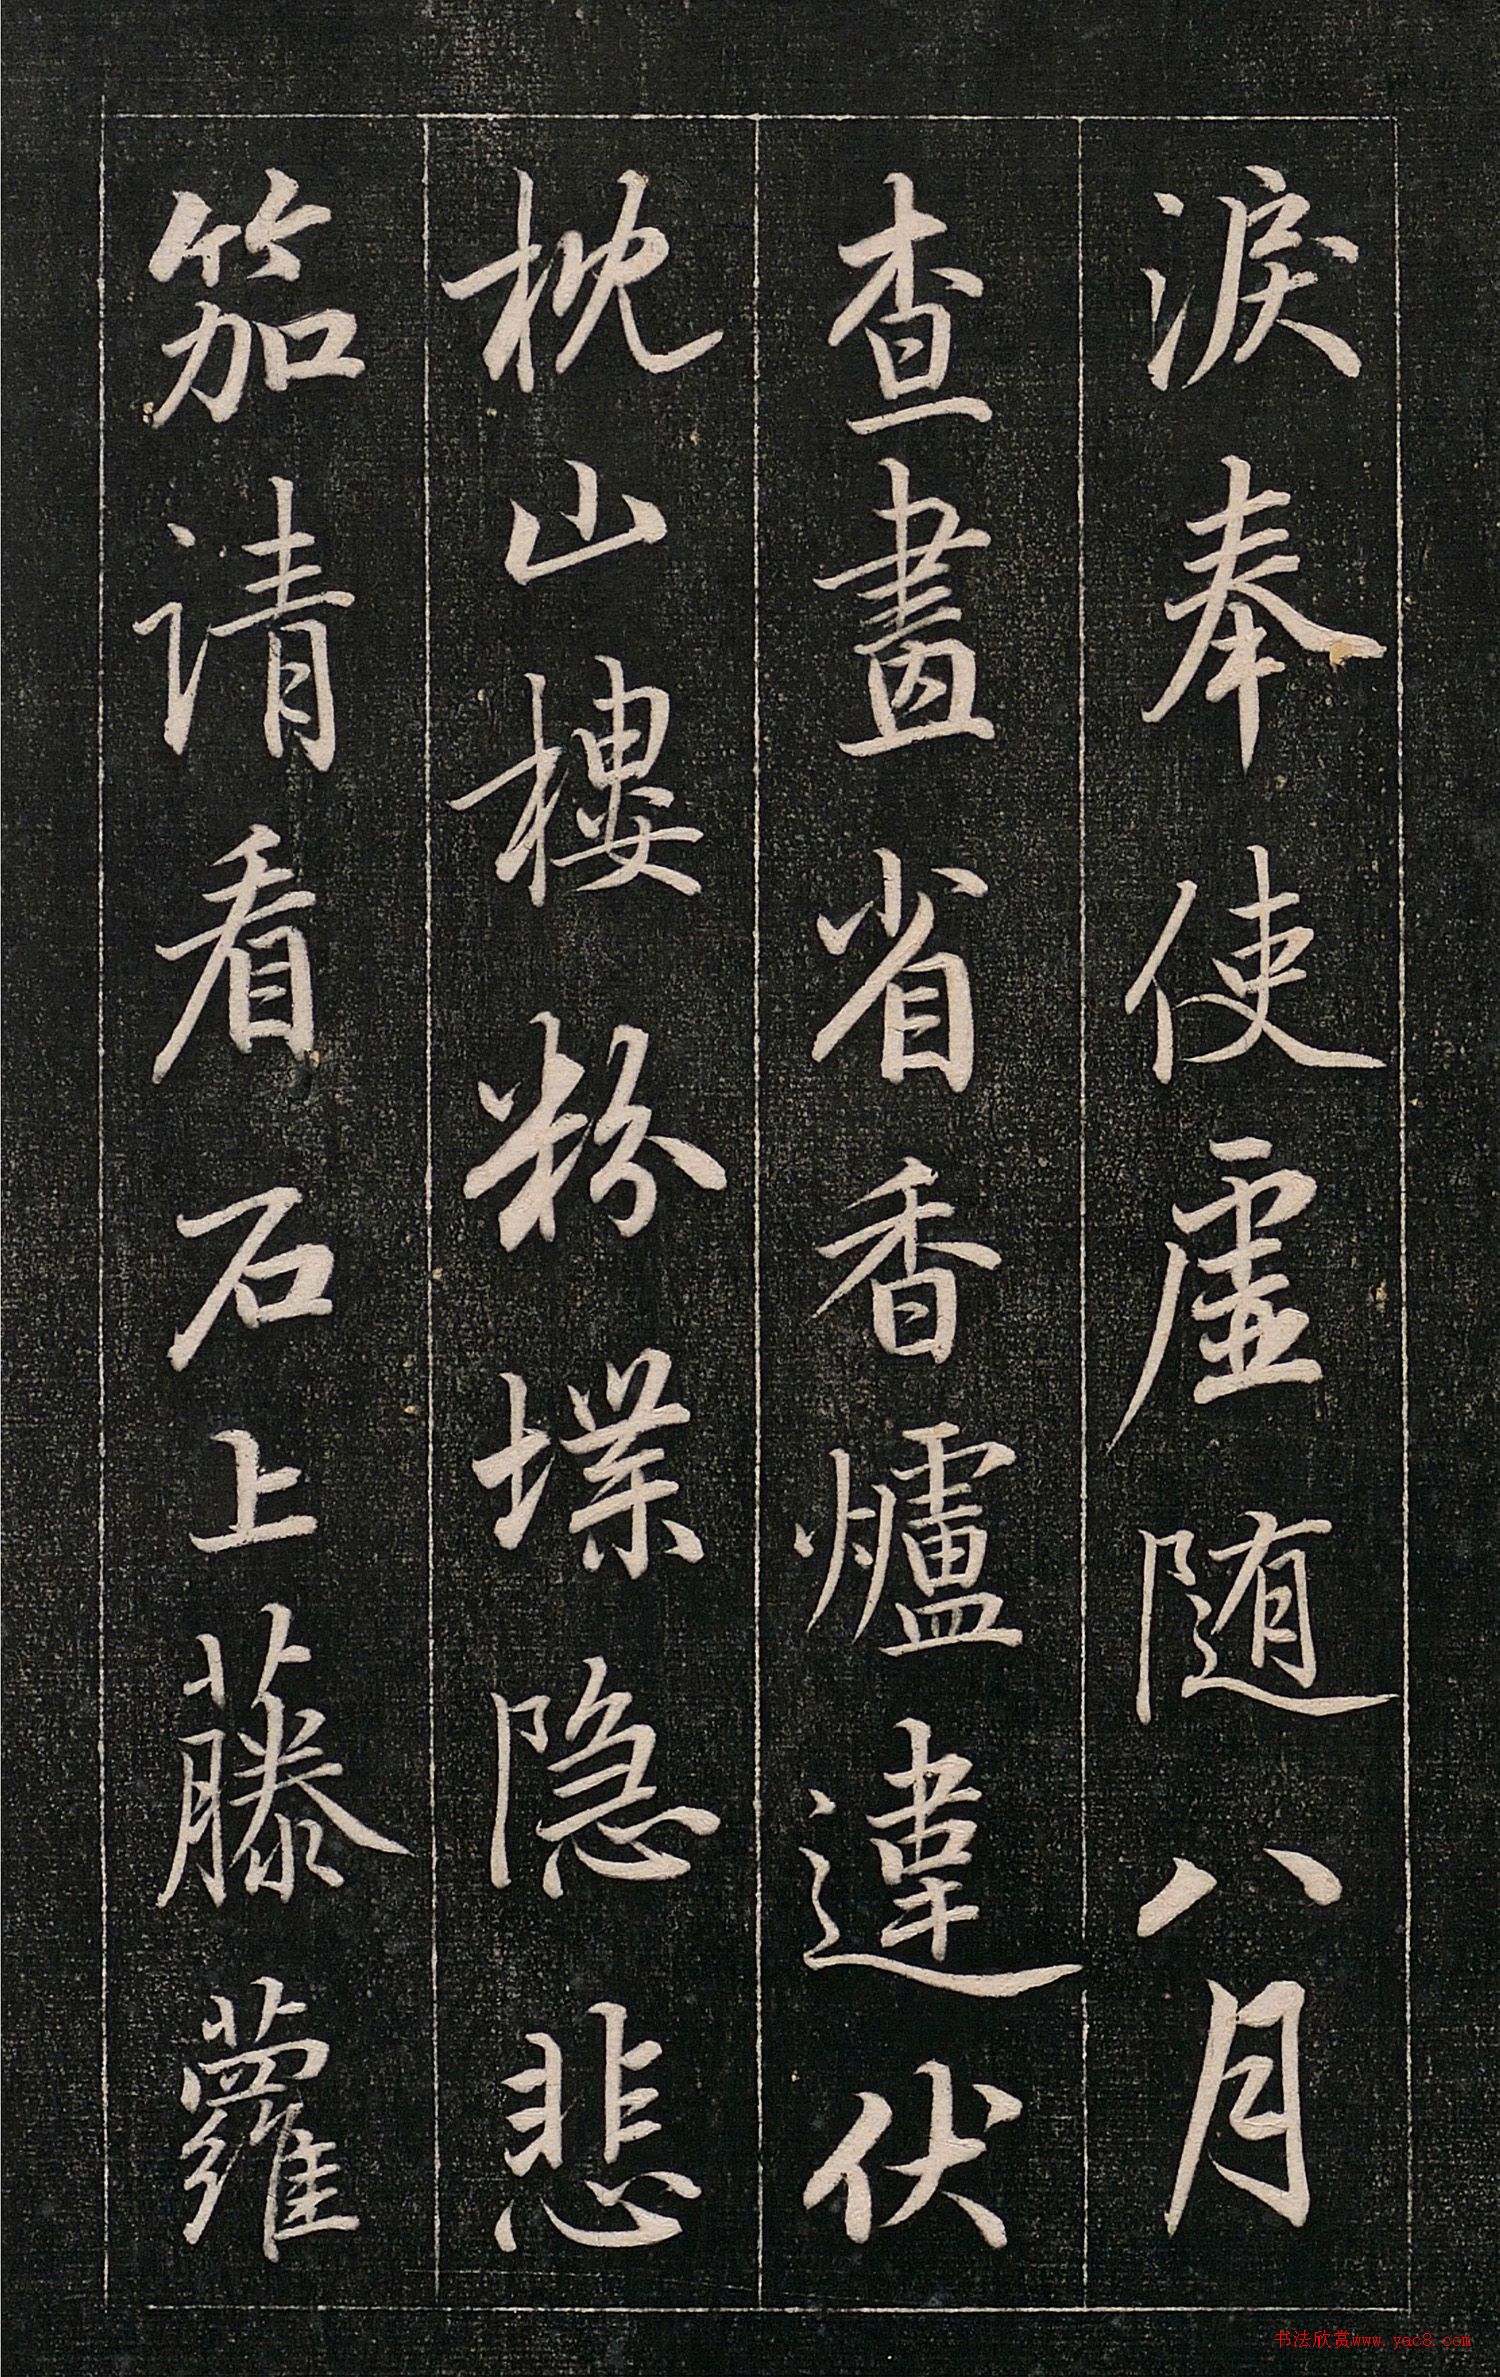 淚奉使虛随八月
查畫省香爐違伏
枕山樓粉堞隐悲
笳请看石上藤蘿
书法欣赏www.yac8.com